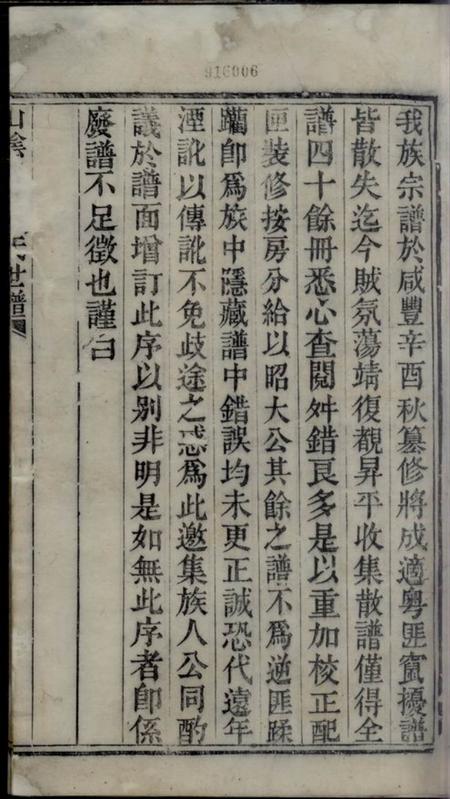 916006
我族宗譜於咸豐辛酉秋纂修將成適粤匪竄擾譜
皆散失迄今賊氛蕩靖復覩昇平收集散譜僅得全
譜四十餘冊悉心查閱舛錯良多是以重加校正配
匣裝修按房分給以昭大公其餘之譜不爲逆匪蹂
躪卽爲族中隱藏譜中錯誤均未更正誠恐代遠年
湮訛以傳訛不免歧途之惑爲此邀集族人公同酌
議於譜面增訂此序以别非明是如無此序者卽係
廢譜不足徵也謹白
山陰 氏世譜